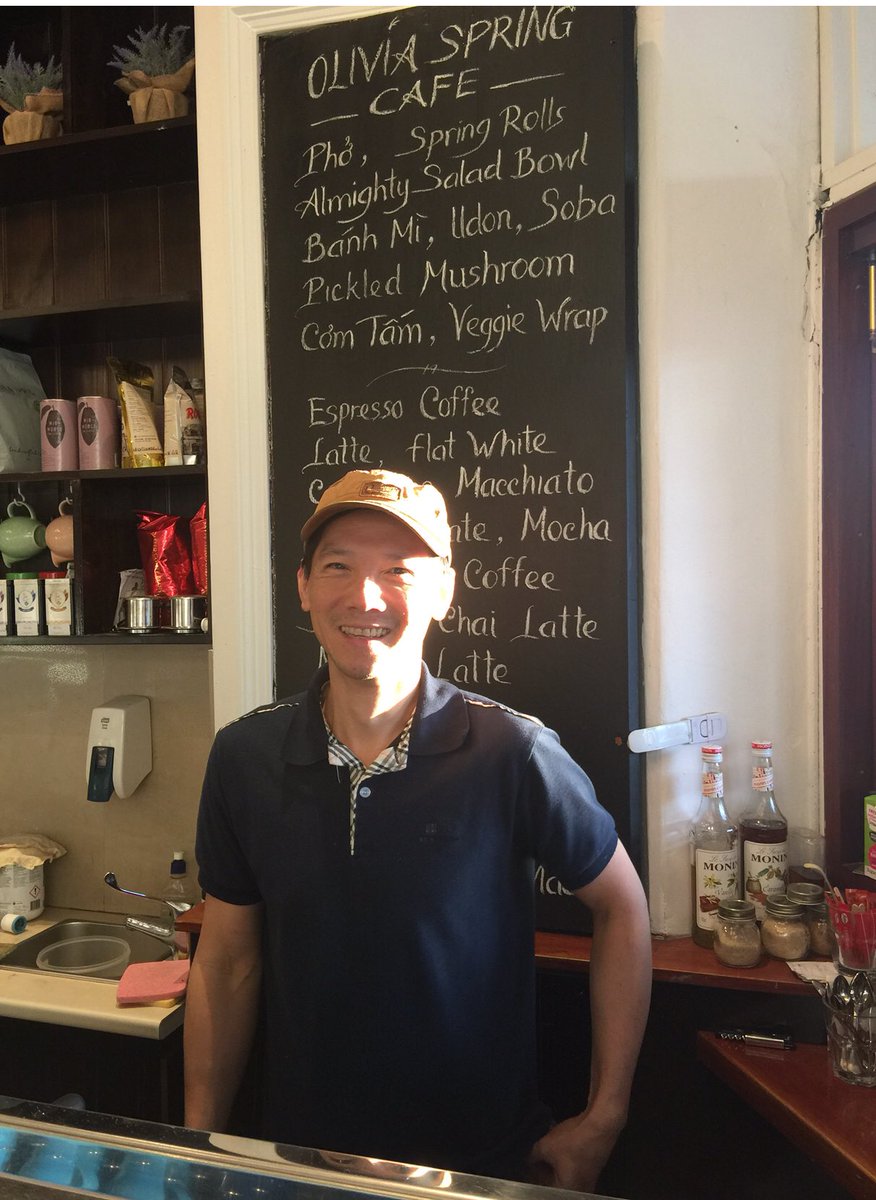 OLIVIA SPRING
CAFE
Phở, Spring Rolls
Almighty Salad Bowl
Bánh Mì, Udon, Soba
Pickled Mushroom
Cơm Tấm, Veggie Wrap
Espresso Coffee
Latte, flat White
Macchiato
Mocha
Coffee
Chai Latte
Latte
MONIN
MONIN